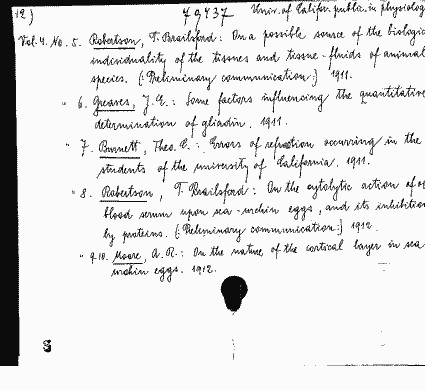 12) 79737 Univ. of Califor. public. in physiolog
Vol. 4. No. 5. Robertson, T. Brailsford: On a possible source of the biologic
individuality of the tissues and tissue-fluids of animal
species. (: Preliminary communication :) 1911.
" 6. Greaves, J. E.: Some factors influencing the quantitative
determination of gliadin. 1911.
" 7. Burnett, Theo. C.: Errors of refraction occurring in the
students of the university of California. 1911.
" 8. Robertson, T. Brailsford: On the cytolytic action of
blood serum upon sea-urchin eggs, and its inhibition
by proteins. (: Preliminary communication :) 1912.
" 9.10. Moore, A. R.: On the nature of the cortical layer in sea
urchin eggs. 1912.